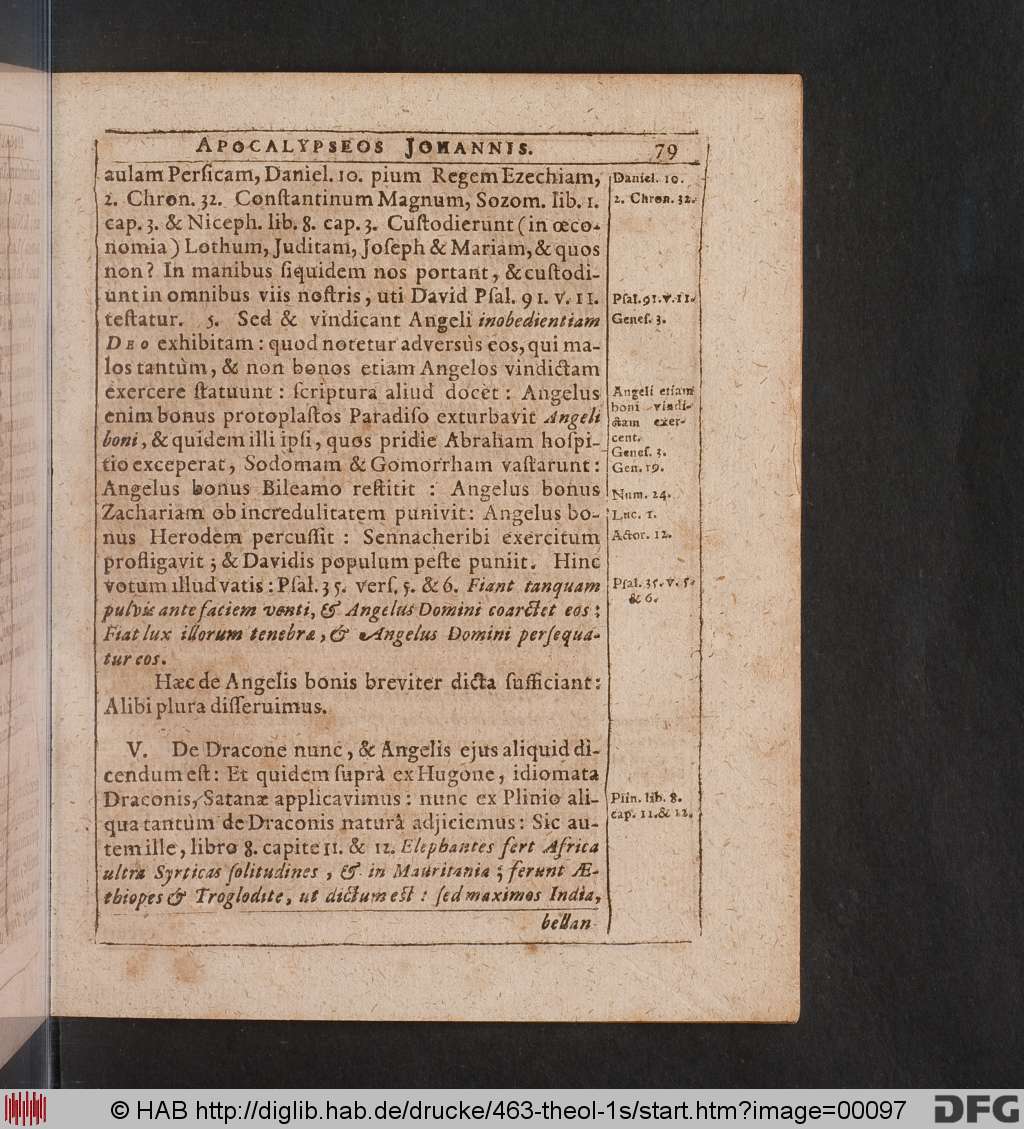 APOCALYPSEOS JOHANNIS. 79
aulam Perſicam, Daniel. 10. pium Regem Ezechiam,
2. Chron. 32. Conſtantinum Magnum, Sozom. lib. 1.
cap. 3. & Niceph. lib. 8. cap. 3. Cuſtodierunt (in œco-
nomia) Lothum, Juditam, Joſeph & Mariam, & quos
non? In manibus ſiquidem nos portant, & cuſtodi-
unt in omnibus viis noſtris, uti David Pſal. 91. v. 11.
teſtatur. 5. Sed & vindicant Angeli inobedientiam
DEO exhibitam: quod notetur adversùs eos, qui ma-
los tantùm, & non bonos etiam Angelos vindictam
exercere ſtatuunt: ſcriptura aliud docet: Angelus
enim bonus protoplaſtos Paradiſo exturbavit Angeli
boni, & quidem illi ipſi, quos pridie Abraham hoſpi-
tio exceperat, Sodomam & Gomorrham vaſtarunt:
Angelus bonus Bileamo reſtitit : Angelus bonus
Zachariam ob incredulitatem punivit: Angelus bo-
nus Herodem percuſſit : Sennacheribi exercitum
profligavit; & Davidis populum peſte puniit. Hinc
votum illud vatis: Pſal. 35. verſ. 5. & 6. Fiant tanquam
pulvis ante faciem venti, & Angelus Domini coarctet eos;
Fiat lux illorum tenebræ, & Angelus Domini perſequa-
tur eos.
Hæc de Angelis bonis breviter dicta ſufficiant:
Alibi plura diſſeruimus.
V. De Dracone nunc, & Angelis ejus aliquid di-
cendum eſt: Et quidem ſuprà ex Hugone, idiomata
Draconis, Satanæ applicavimus: nunc ex Plinio ali-
qua tantùm de Draconis naturâ adjiciemus: Sic au-
tem ille, libro 8. capite 11. & 12. Elephantes fert Africa
ultra Syrticas ſolitudines, & in Mauritania; ferunt Æ-
thiopes & Troglodite, ut dictum eſt: ſed maximos India,
bellan-
Daniel. 10.
2. Chron. 32.
Pſal. 91. v. 11.
Geneſ. 3.
Angeli etiam
boni vindi-
ctam exer-
cent.
Geneſ. 3.
Gen. 19.
Num. 24.
Luc. 1.
Actor. 12.
Pſal. 35. v. 5.
& 6.
Plin. lib. 8.
cap. 11. & 12.
© HAB http://diglib.hab.de/drucke/463-theol-1s/start.htm?image=00097 DFG